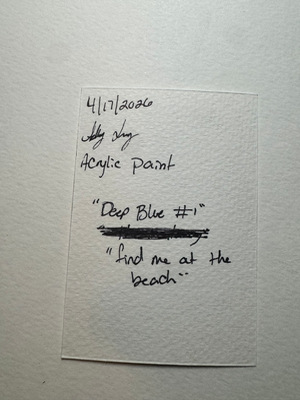 4/17/2026
Acrylic Paint
"Deep Blue #1"
"find me at the
beach"